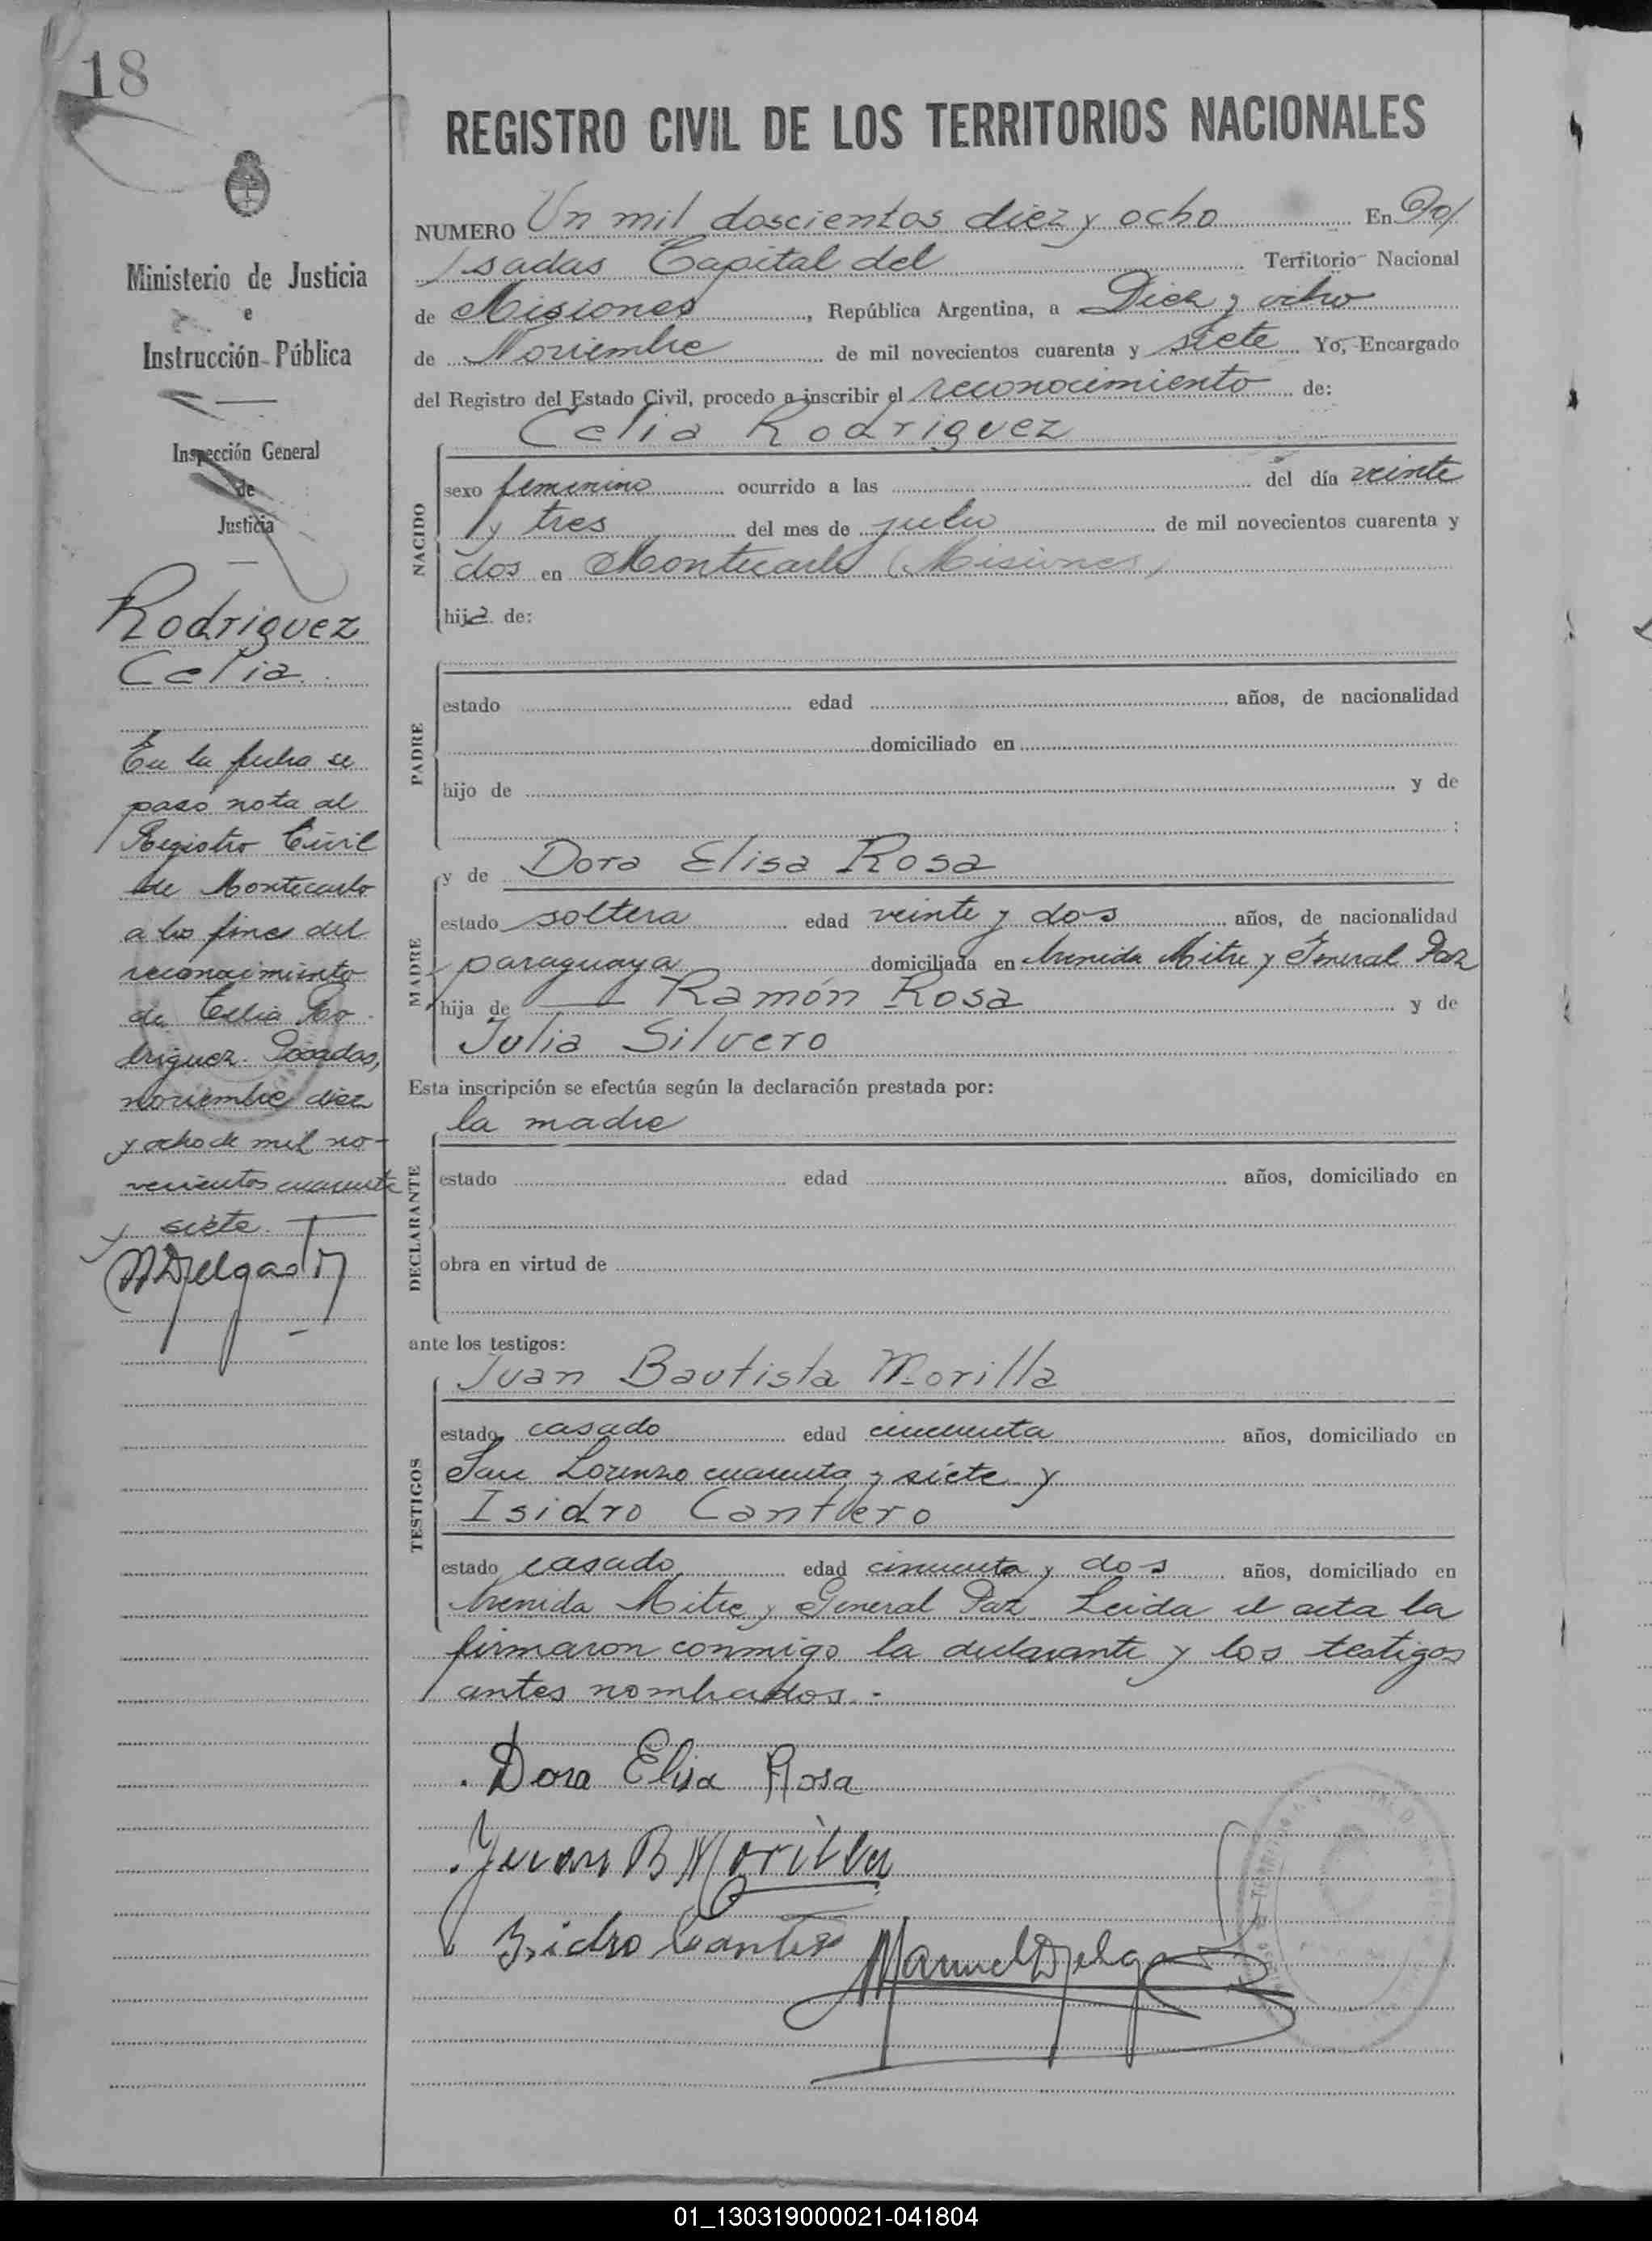 18
Ministerio de Justicia
e
Instrucción Pública
Inspección General
de
Justicia
Rodriguez
Celia
En la fecha se
pasó nota al
Registro Civil
de Montecarlo
a los fines del
reconocimiento
de Celia Ro-
driguez. Posadas,
noviembre diez
y ocho de mil no-
vecientos cuarenta
y siete.
REGISTRO CIVIL DE LOS TERRITORIOS NACIONALES
NUMERO Un mil doscientos diez y ocho En Po/
sadas Capital del Territorio Nacional
de Misiones, República Argentina, a Diez y ocho
de Noviembre de mil novecientos cuarenta y siete Yo, Encargado
del Registro del Estado Civil, procedo a inscribir el reconocimiento de:
Celia Rodriguez
NACIDO
sexo femenino ocurrido a las del día veinte
y tres del mes de julio de mil novecientos cuarenta y
dos en Montecarlo (Misiones)
hija de:
PADRE
estado edad años, de nacionalidad
domiciliado en
hijo de y de
;
y de Dora Elisa Rosa
MADRE
estado soltera edad veinte y dos años, de nacionalidad
paraguaya domiciliada en Avenida Mitre y General Paz
hija de Ramón Rosa y de
Julia Silvero
Esta inscripción se efectúa según la declaración prestada por:
la madre
DECLARANTE
estado edad años, domiciliado en
obra en virtud de
ante los testigos:
Juan Bautista Morilla
TESTIGOS
estado casado edad cincuenta años, domiciliado en
San Lorenzo cuarenta y siete y
Isidro Cantero
estado casado edad cincuenta y dos años, domiciliado en
Avenida Mitre y General Paz Leida el acta la
firmaron conmigo la declarante y los testigos
antes nombrados.-
Dora Elisa Rosa
Juan B Morilla
Isidro Cantero
Manuel Delgado
01_130319000021-041804